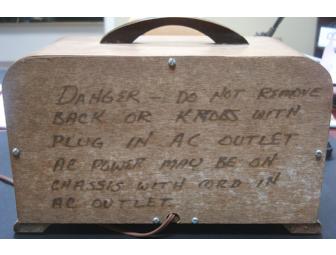 DANGER - DO NOT REMOVE
BACK OR KNOBS WITH
PLUG IN AC OUTLET
AC POWER MAY BE ON
CHASSIS WITH CORD IN
AC OUTLET